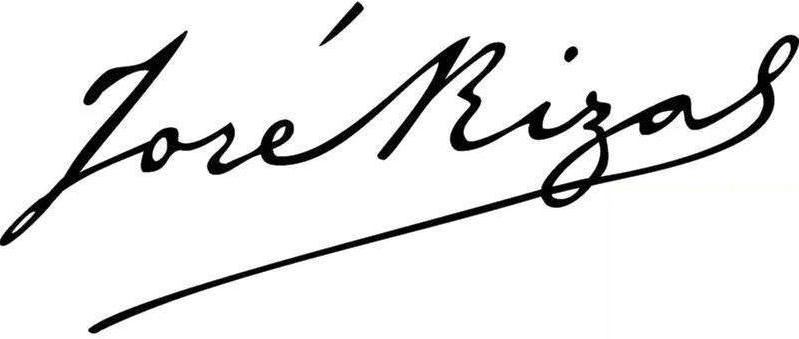 José Rizal